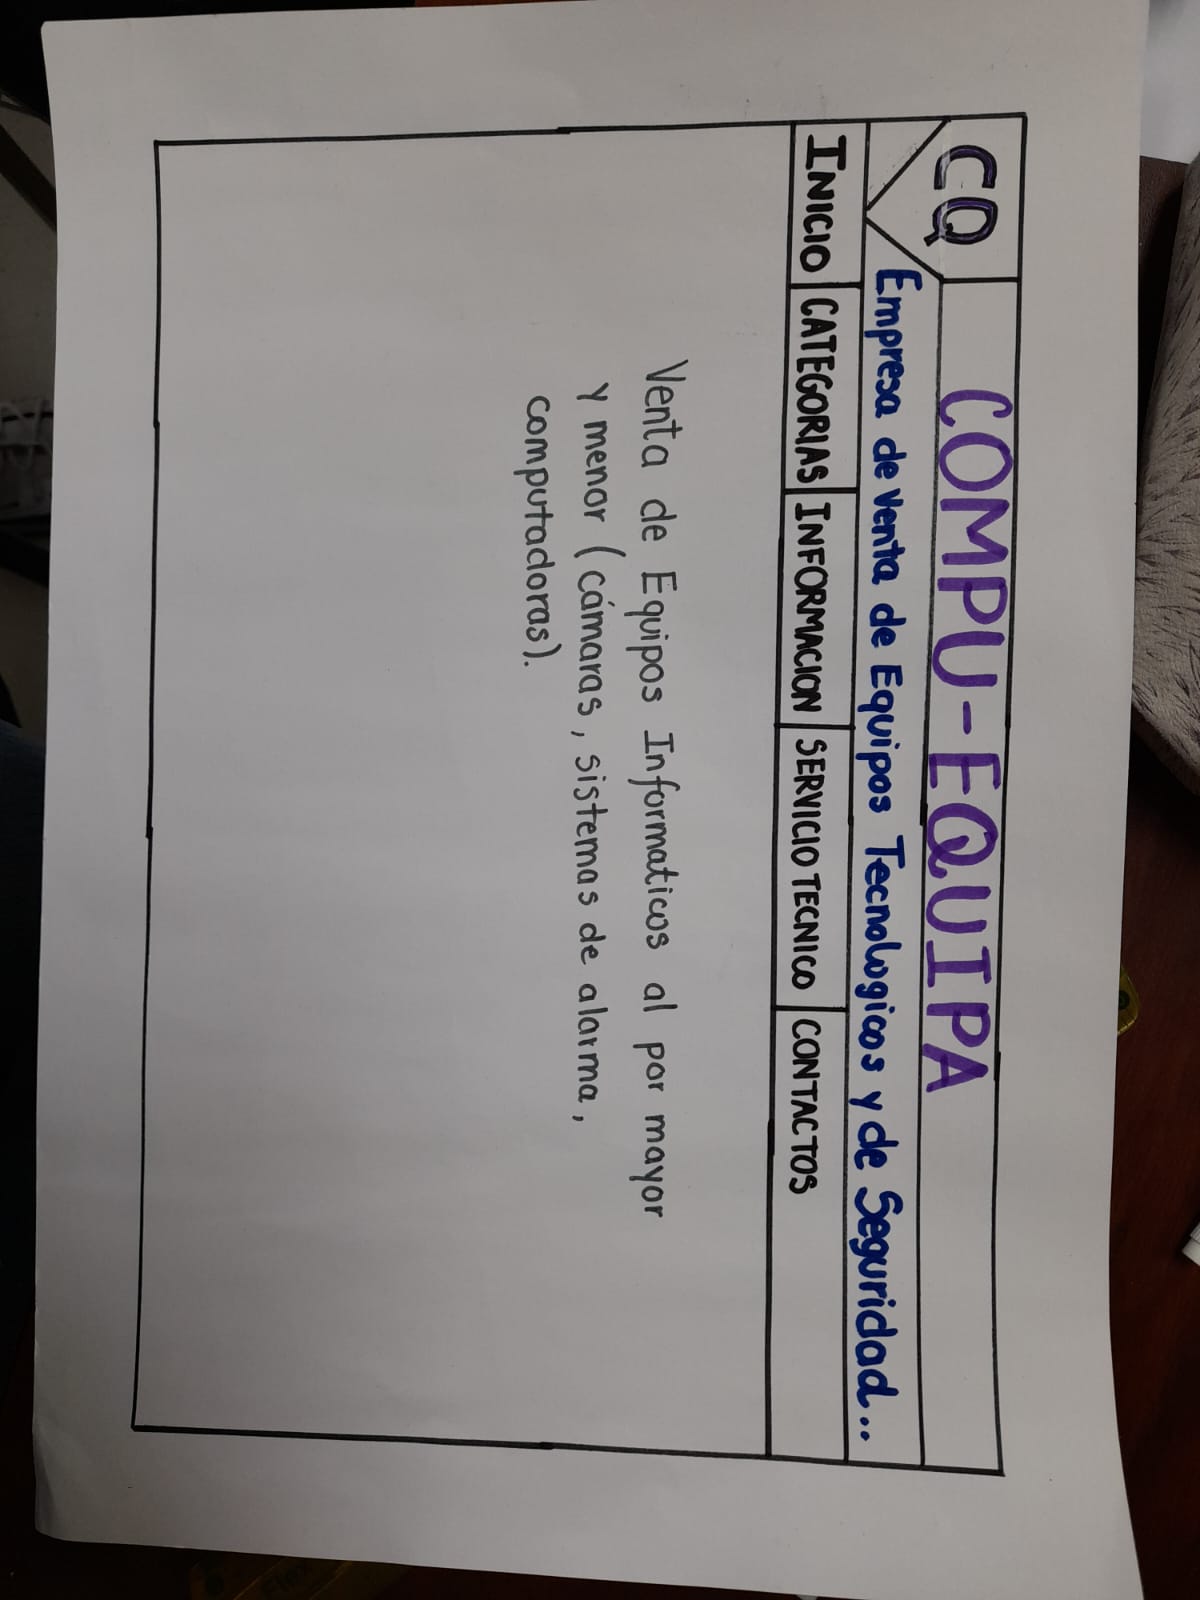 CQ
COMPU-EQUIPA
Empresa de Venta de Equipos Tecnologicos y de Seguridad...
INICIO CATEGORIAS INFORMACION SERVICIO TECNICO CONTACTOS
Venta de Equipos Informaticos al por mayor
y menor (cámaras, sistemas de alarma,
computadoras).